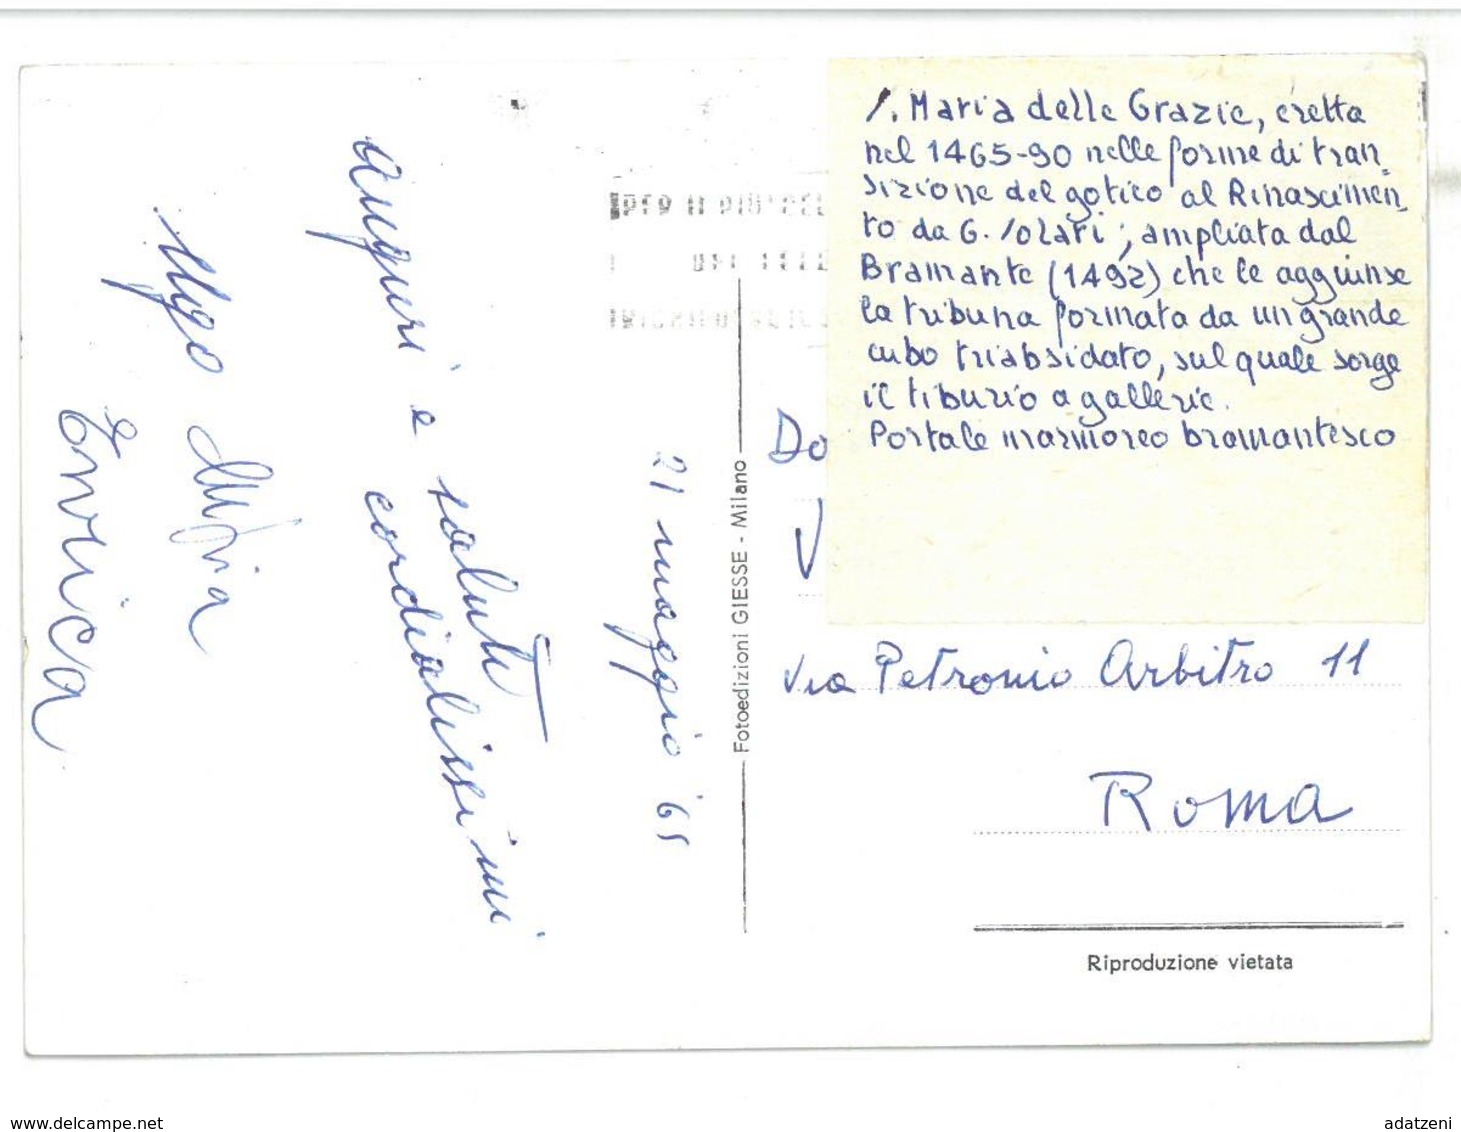 Auguri e saluti
cordialissimi
Ugo
Enrica
21 maggio '65
Fotoedizioni GIESSE - Milano
S. Maria delle Grazie, eretta
nel 1465-90 nelle forme di tran=
sizione del gotico al Rinascimen=
to da G. Solari; ampliata dal
Bramante (1492) che le aggiunse
la tribuna formata da un grande
cubo triabsidato, sul quale sorge
il tiburio a gallerie.
Portale marmoreo bramantesco
Do
V
via Petronio Arbitro 11
Roma
Riproduzione vietata
www.delcampe.net
adatzeni